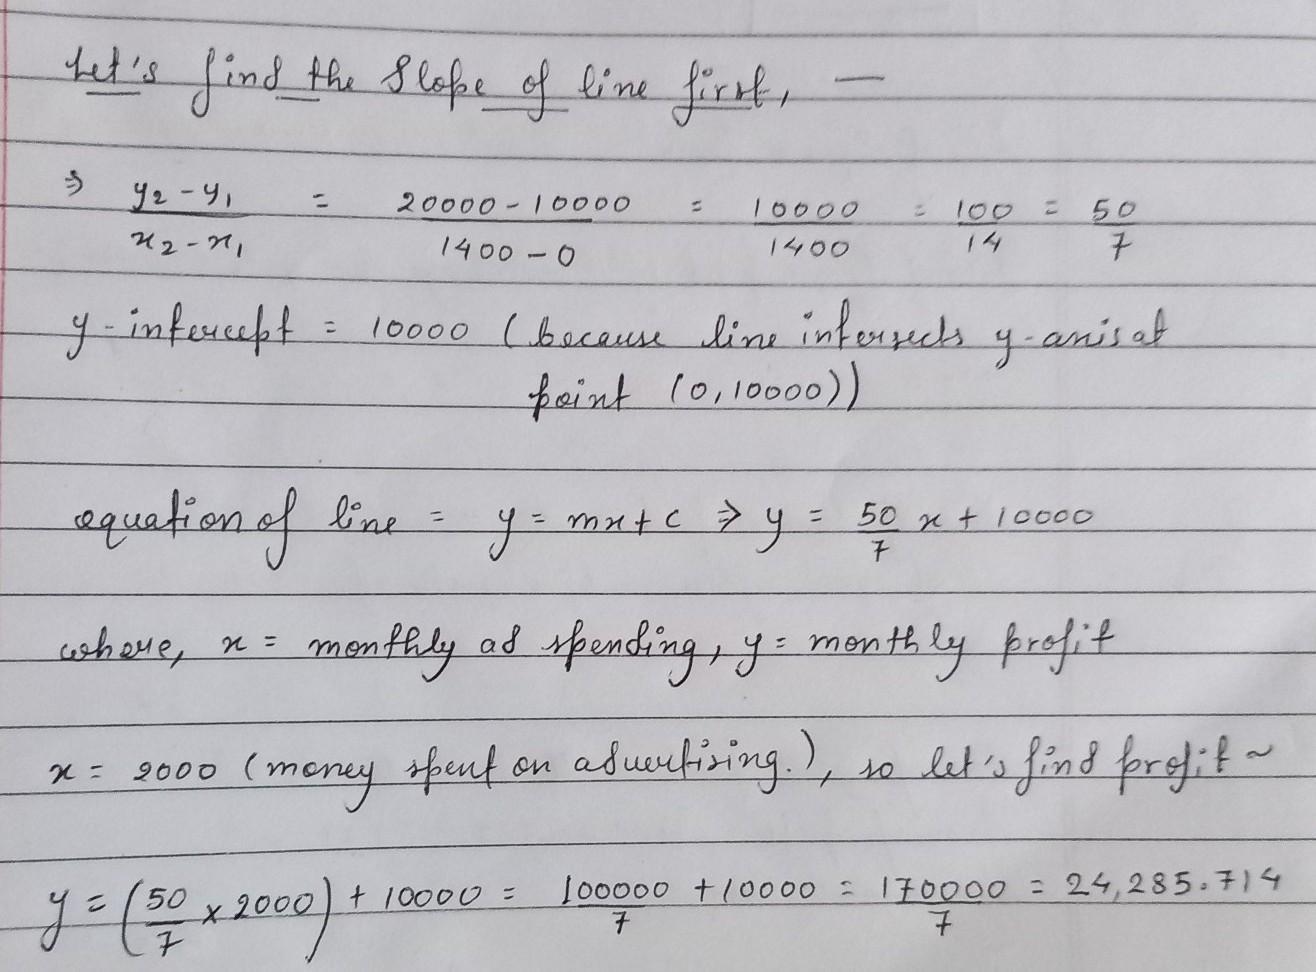 Let's find the slope of line first, —
⇒ y₂ - y₁ / x₂ - x₁ = 20000 - 10000 / 1400 - 0 = 10000 / 1400 = 100 / 14 = 50 / 7
y-intercept = 10000 (because line intersects y-axis at
point (0,10000))
equation of line = y = mx + c ⇒ y = 50/7 x + 10000
where, x = monthly ad spending, y = monthly profit
x = 2000 (money spent on advertising.), so let's find profit ~
y = (50/7 × 2000) + 10000 = 100000/7 + 10000 = 170000/7 = 24,285.714